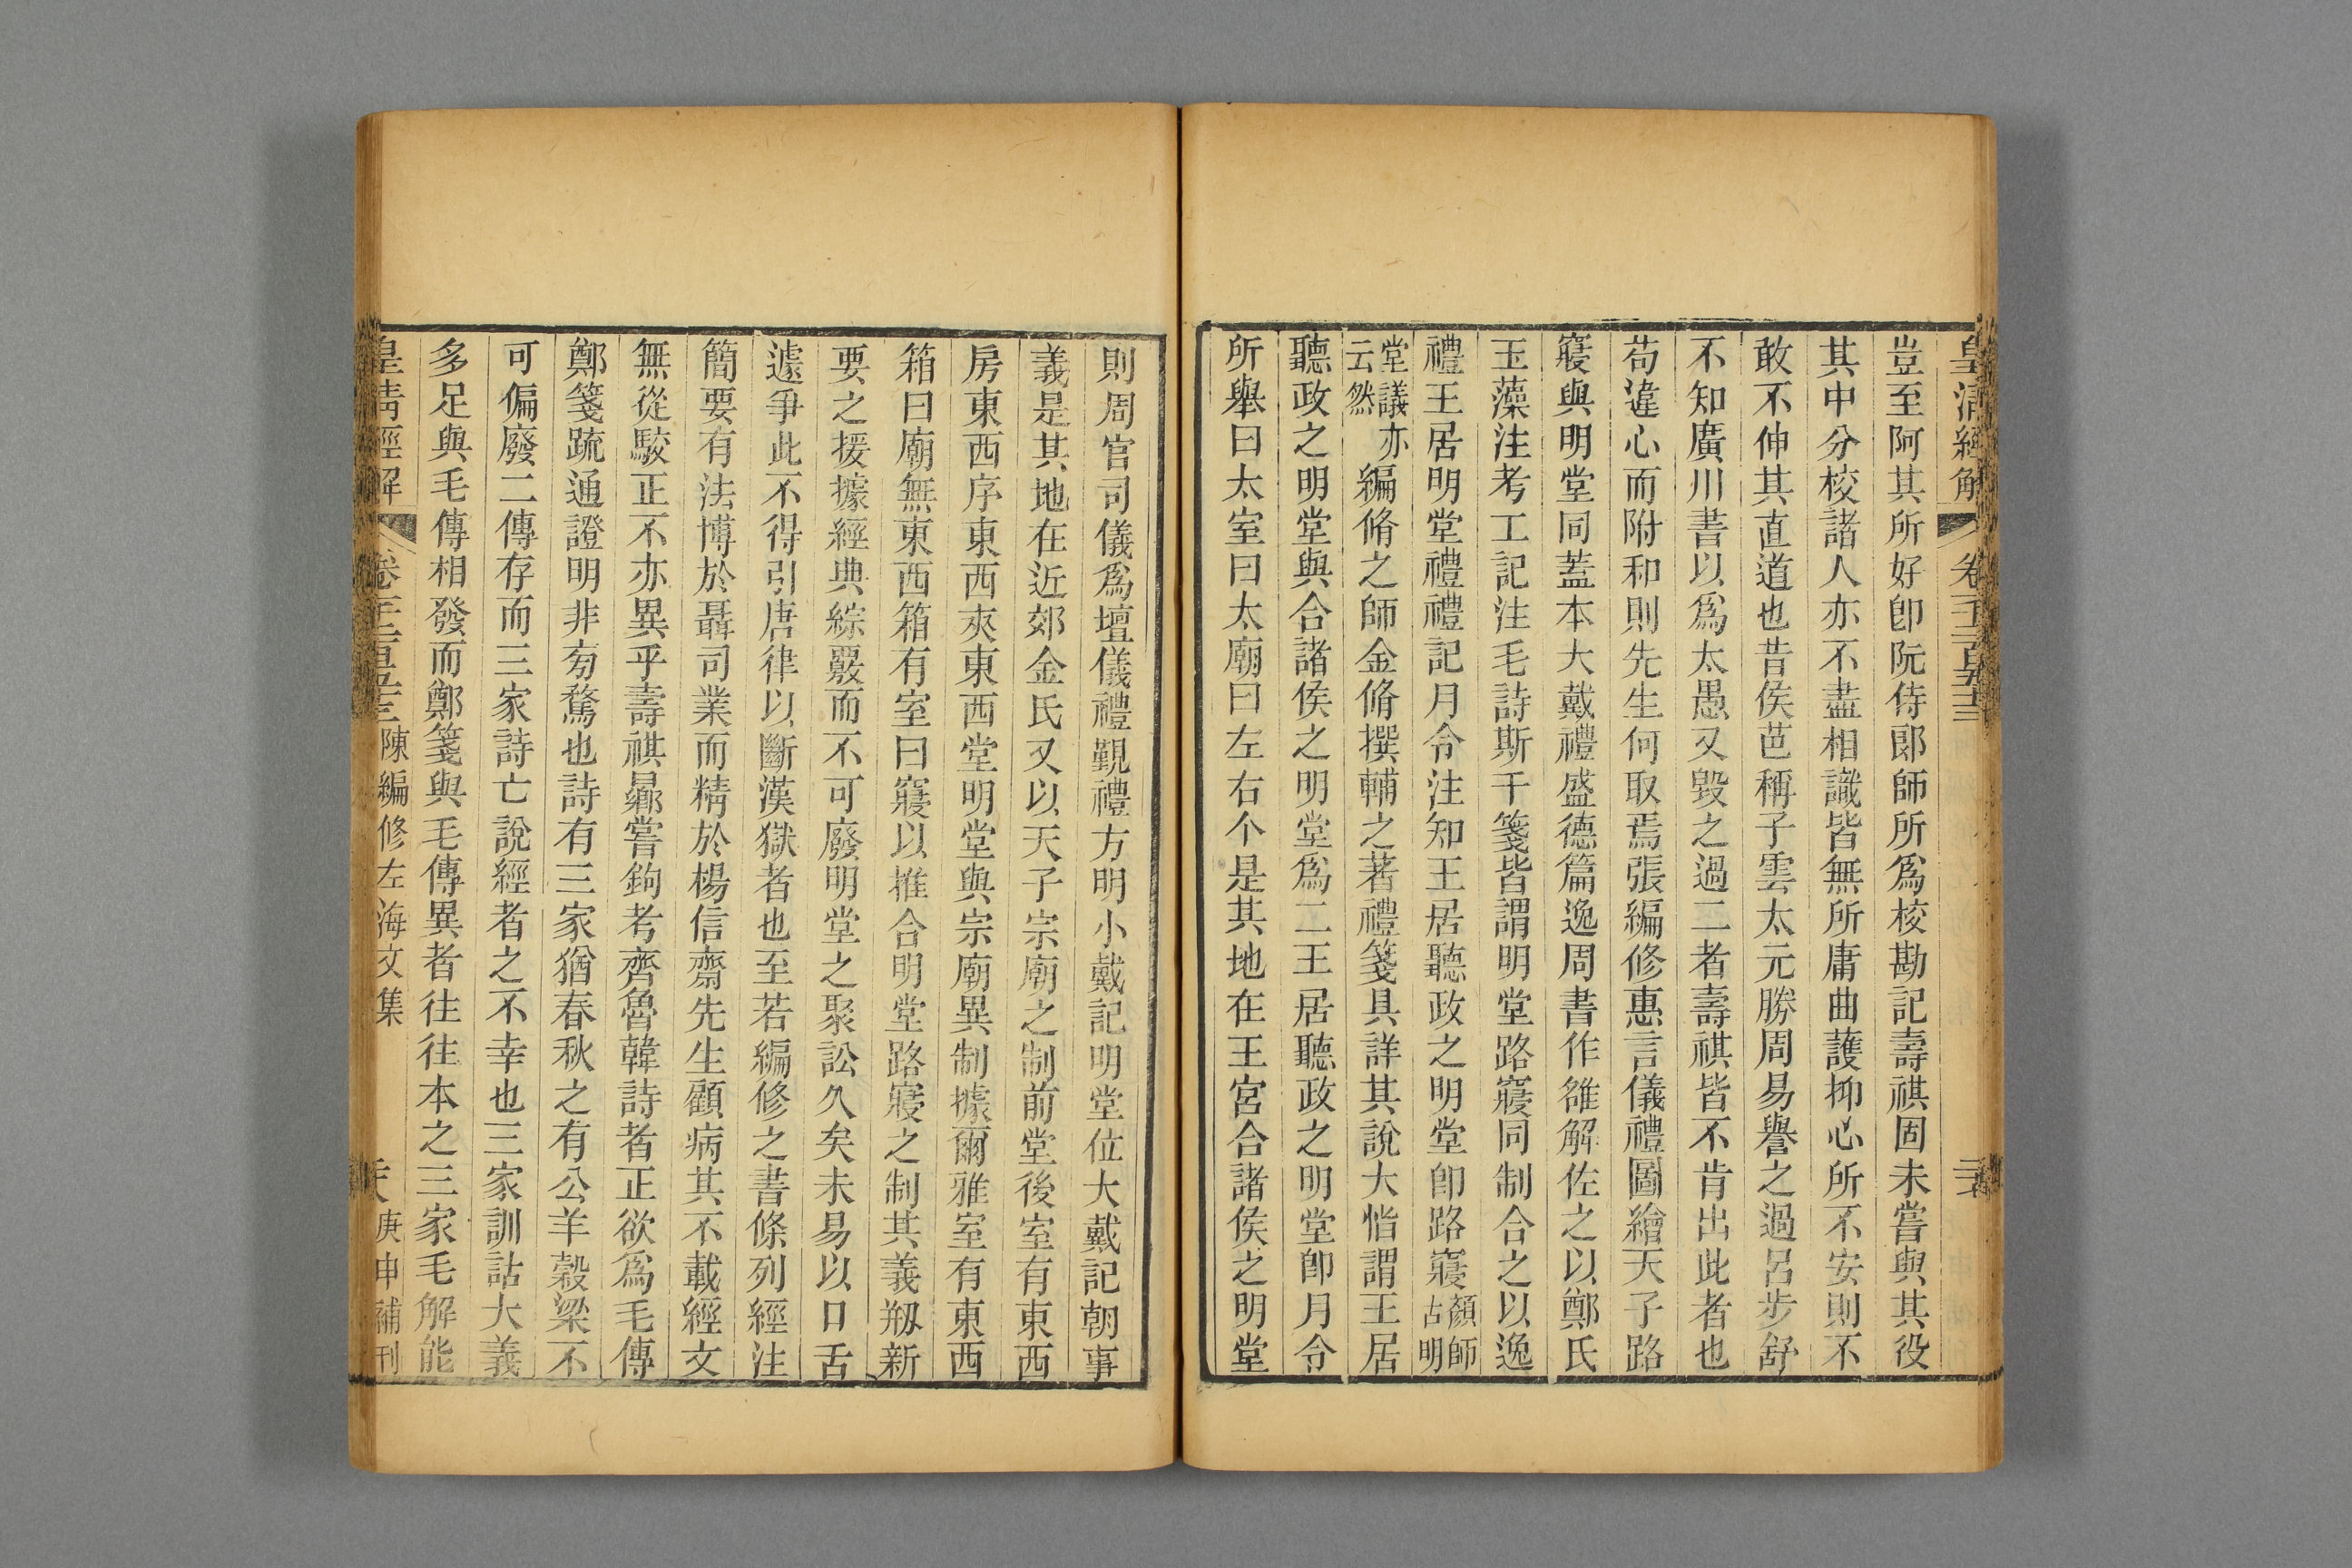 皇清經解 卷一千二百五十三
豈至阿其所好卽阮侍郞師所爲校勘記壽祺固未嘗與其役
其中分校諸人亦不盡相識皆無所庸曲護抑心所不安則不
敢不伸其直道也昔侯芭稱子雲太元勝周易譽之過呂步舒
不知廣川書以爲太愚又毀之過二者壽祺皆不肯出此者也
苟違心而附和則先生何取焉張編修惠言儀禮圖繪天子路
寢與明堂同蓋本大戴禮盛德篇逸周書作雒解佐之以鄭氏
玉藻注考工記注毛詩斯干箋皆謂明堂路寢同制合之以逸
禮王居明堂禮禮記月令注知王居聽政之明堂卽路寢顏師古明
堂議亦云然編脩之師金脩撰輔之著禮箋具詳其說大恉謂王居
聽政之明堂與合諸侯之明堂爲二王居聽政之明堂卽月令
所舉曰太室曰太廟曰左右个是其地在王宮合諸侯之明堂
則周官司儀爲壇儀禮覲禮方明小戴記明堂位大戴記朝事
義是其地在近郊金氏又以天子宗廟之制前堂後室有東西
房東西序東西夾東西堂明堂與宗廟異制據爾雅室有東西
箱曰廟無東西箱有室曰寢以推合明堂路寢之制其義剏新
要之援據經典綜覈而不可廢明堂之聚訟久矣未易以口舌
遽爭此不得引唐律以斷漢獄者也至若編修之書條列經注
簡要有法博於聶司業而精於楊信齋先生顧病其不載經文
無從駮正不亦異乎壽祺曏嘗鉤考齊魯韓詩者正欲爲毛傳
鄭箋疏通證明非旁騖也詩有三家猶春秋之有公羊穀梁不
可偏廢二傳存而三家詩亡說經者之不幸也三家訓詁大義
多足與毛傳相發而鄭箋與毛傳異者往往本之三家毛解能
皇清經解 卷一千二百五十三 陳編修左海文集 庚申補刊